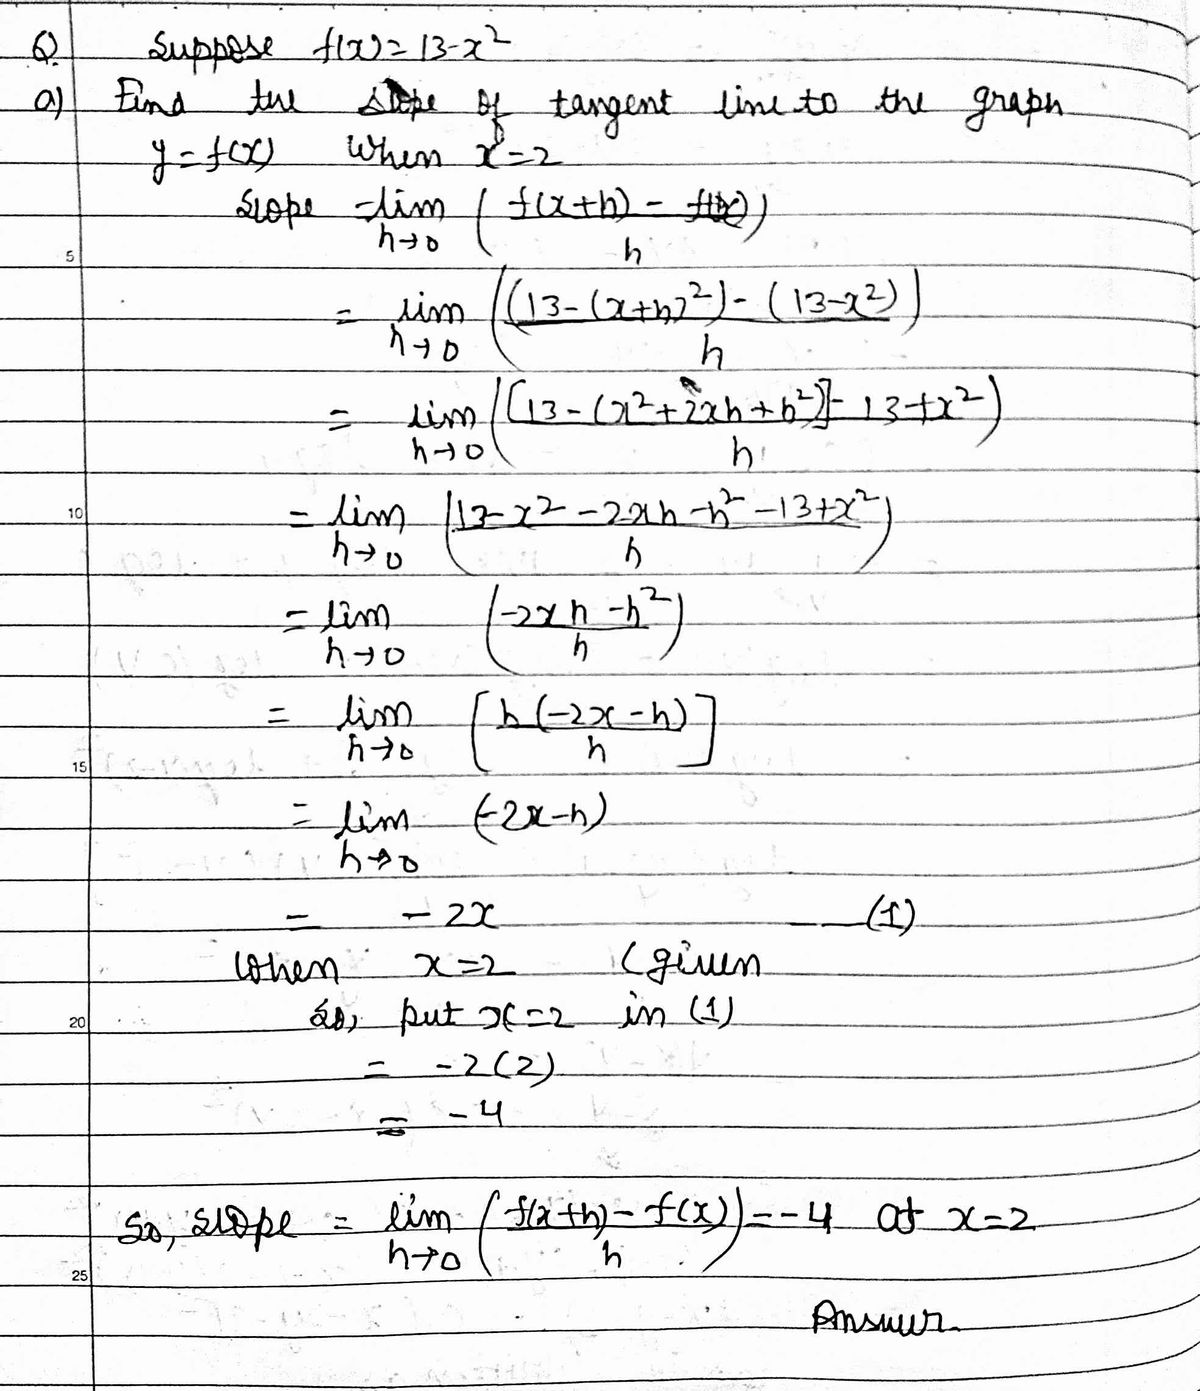 Q. Suppose f(x) = 13-x²
a) Find the slope of tangent line to the graph
y = f(x) When x=2
Slope = lim h→0 ( f(x+h) - f(x) / h )
5
= lim h→0 ( (13-(x+h)²) - (13-x²) / h )
= lim h→0 ( [13-(x²+2xh+h²)] - 13+x² / h )
10 = lim h→0 ( 13-x² -2xh -h² -13+x² / h )
= lim h→0 ( -2xh -h² / h )
= lim h→0 [ h(-2x-h) / h ]
15
= lim h→0 (-2x-h)
= -2x —(1)
When x=2 (given
20 So, put x=2 in (1)
= -2(2)
= -4
So, slope = lim h→0 ( f(x+h) - f(x) / h ) = -4 at x=2
25
Answer.